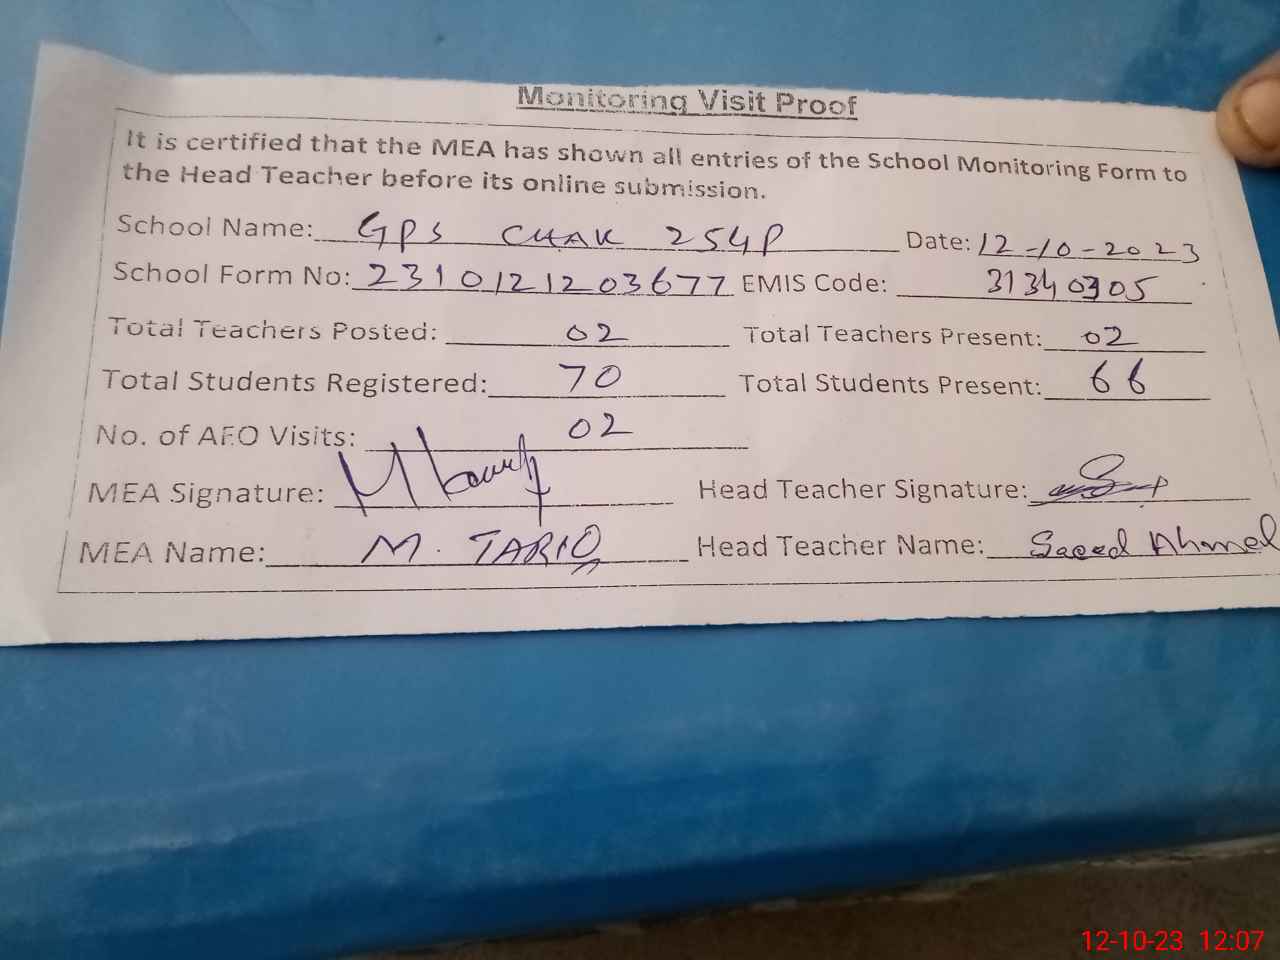 Monitoring Visit Proof
It is certified that the MEA has shown all entries of the School Monitoring Form to
the Head Teacher before its online submission.
School Name: GPS CHAK 254P Date: 12-10-2023
School Form No: 2310121203677 EMIS Code: 31340305
Total Teachers Posted: 02 Total Teachers Present: 02
Total Students Registered: 70 Total Students Present: 66
No. of AEO Visits: 02
MEA Signature: Head Teacher Signature:
MEA Name: M. TARIQ Head Teacher Name: Saeed Ahmed
12-10-23 12:07